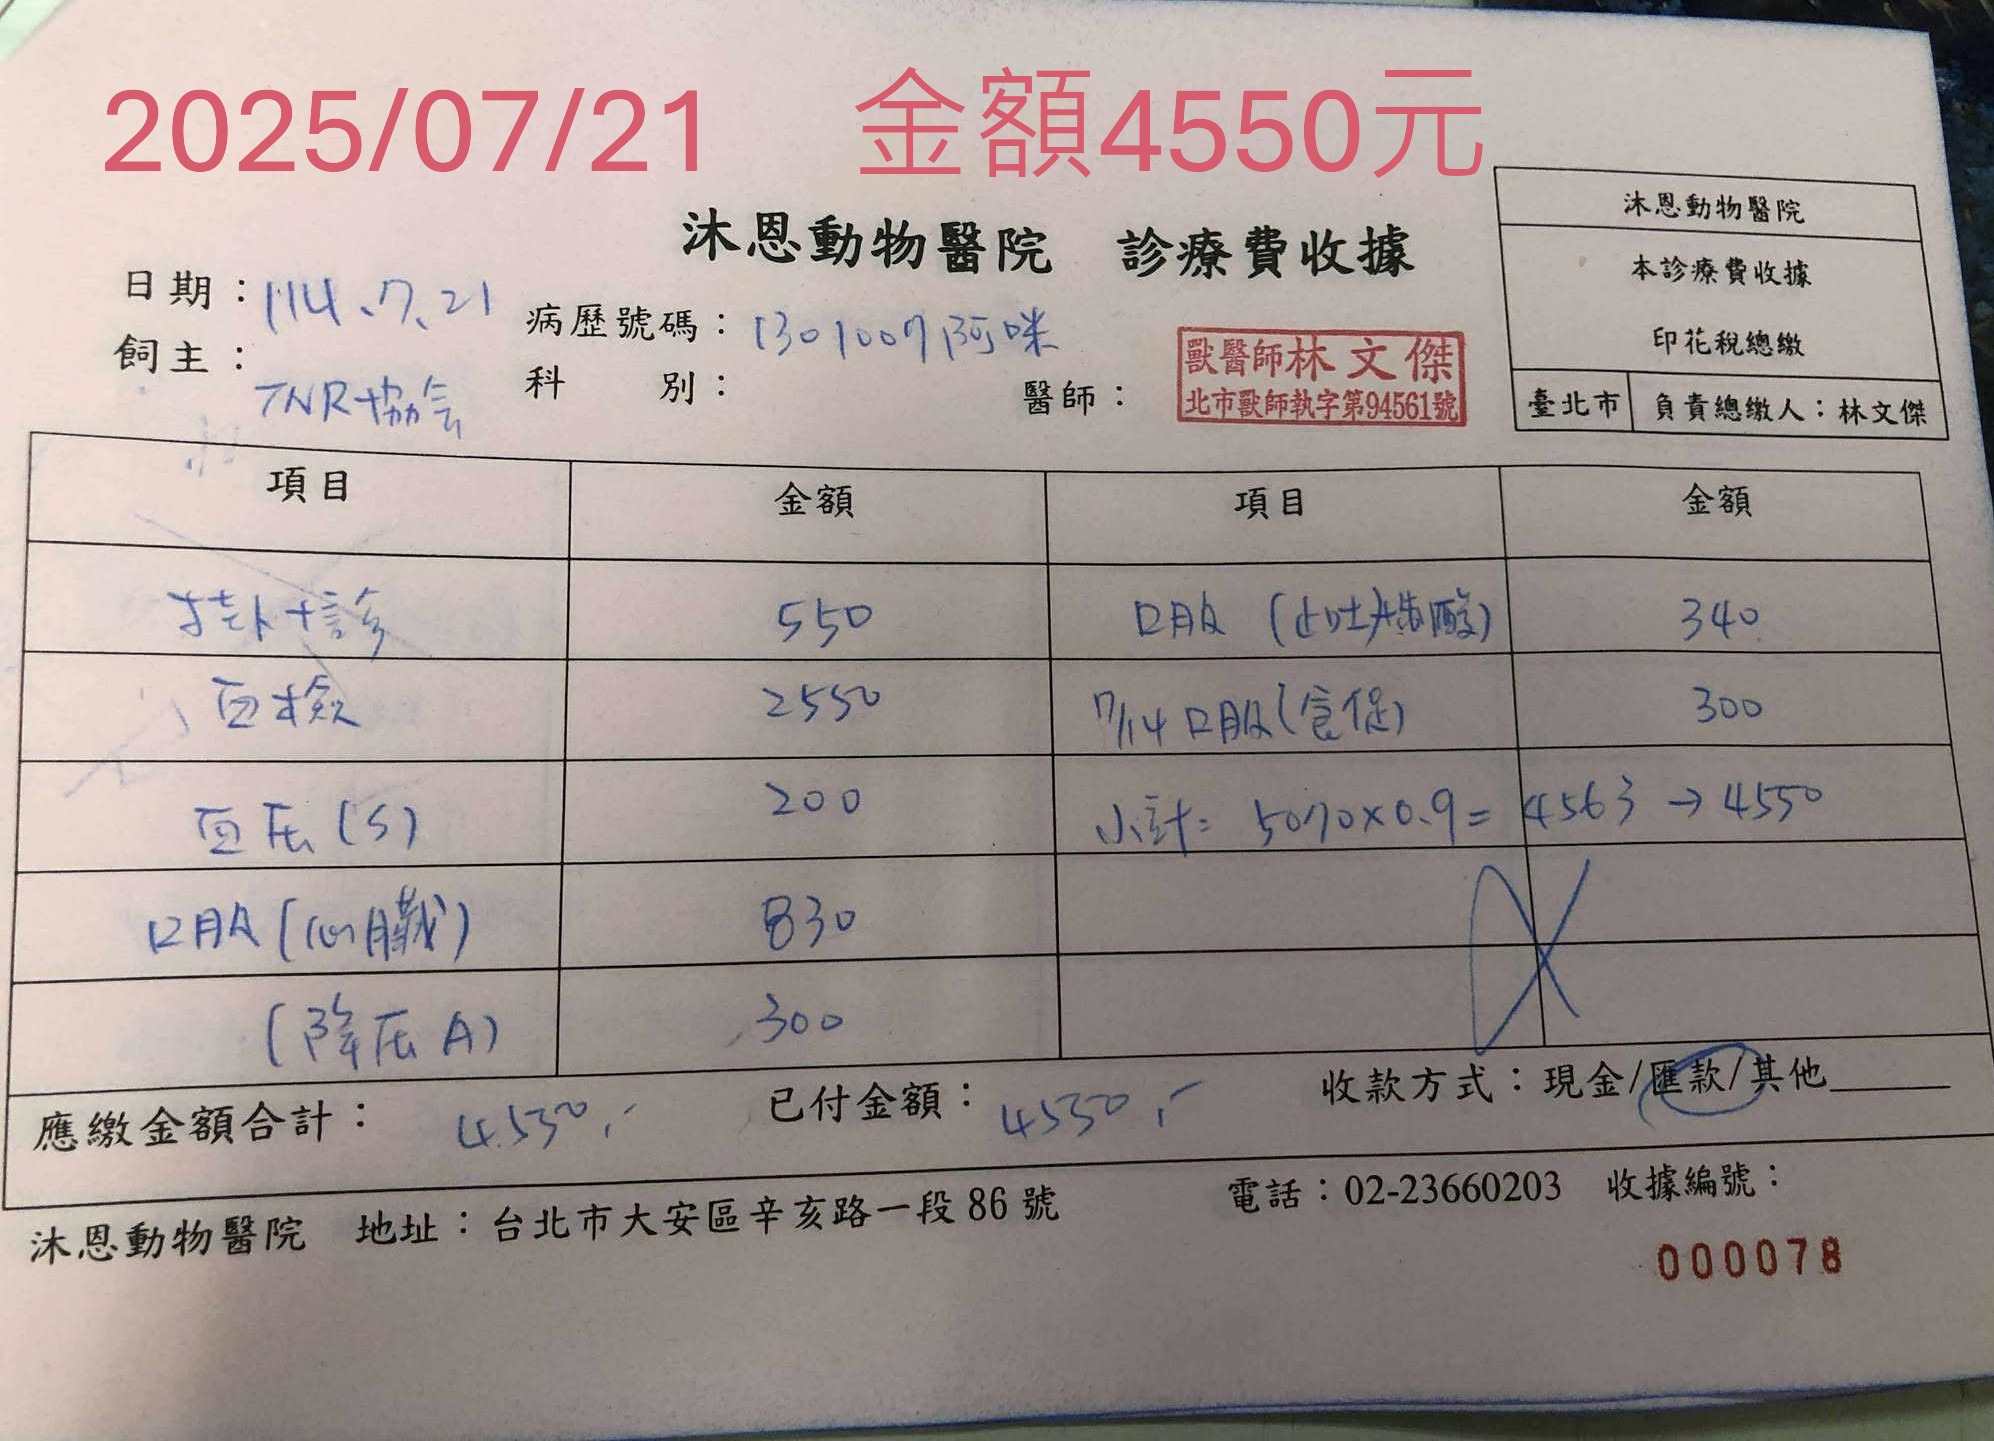 2025/07/21 金額4550元
沐恩動物醫院 診療費收據
沐恩動物醫院
本診療費收據
印花稅總繳
臺北市 負責總繳人：林文傑
日期：114.7.21 病歷號碼：1301007阿咪
飼主：TNR協会 科 別： 醫師：
獸醫師林文傑
北市獸師執字第94561號
項目 金額 項目 金額
掛+診 550 口服 340
血檢 2550 7/14 口服(食促) 300
血压(S) 200 小計= 5070×0.9= 4563 → 4550
口服(心臟) 830
(降压A) 300
應繳金額合計：4550.- 已付金額：4550.- 收款方式：現金/匯款/其他
沐恩動物醫院 地址：台北市大安區辛亥路一段86號 電話：02-23660203 收據編號：
000078